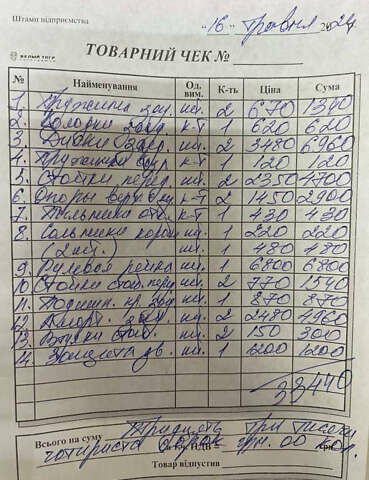 Штамп підприємства
"16" Травня 2024
ТОВАРНИЙ ЧЕК №
№ Найменування Од. вим. К-ть Ціна Сума
1. Пружина зад. шт. 2 670 1340
2. Колодки задр. к-т 1 620 620
3. шт. 2 3480 6960
4. к-т 1 120 120
5. Стойки перед. шт. 2 2350 4700
6. Опоры к-т 2 1450 2900
7. к-т 1 430 430
8. Сальники шт. 1 220 220
шт. 1 480 480
9. Рулевая рейка шт. 1 6800 6800
10 Стойки стаб. пер. шт. 2 770 1540
11. Подшип. шт. 1 870 870
12. Аморт. зад. шт. 2 2480 4960
13. Втулки стаб. шт. 2 150 300
14. Защита дв. шт. 1 1200 1200
33440
Всього на суму Тридцять три тисячі
чотириста сорок грн. 00 коп.
Товар відпустив